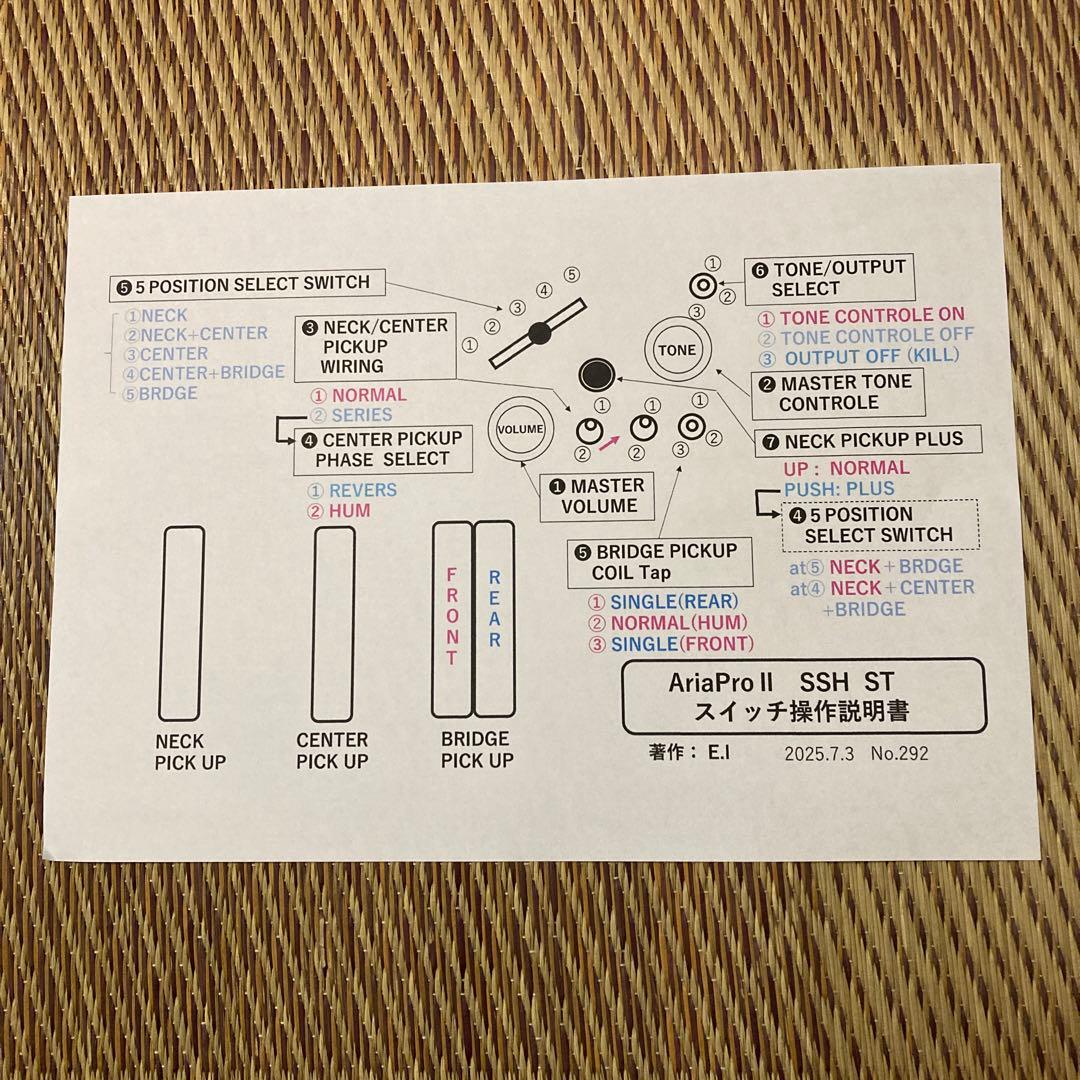 ❺ 5 POSITION SELECT SWITCH
①NECK
②NECK+CENTER
③CENTER
④CENTER+BRIDGE
⑤BRDGE
① ② ③ ④ ⑤
❸ NECK/CENTER
PICKUP
WIRING
① NORMAL
② SERIES
❹ CENTER PICKUP
PHASE SELECT
① REVERS
② HUM
VOLUME
TONE
①
②
③
❻ TONE/OUTPUT
SELECT
① TONE CONTROLE ON
② TONE CONTROLE OFF
③ OUTPUT OFF (KILL)
❷ MASTER TONE
CONTROLE
① ① ①
② ② ③ ②
❶ MASTER
VOLUME
❼ NECK PICKUP PLUS
UP : NORMAL
PUSH: PLUS
❹ 5 POSITION
SELECT SWITCH
at⑤ NECK+BRDGE
at④ NECK+CENTER
+BRIDGE
❺ BRIDGE PICKUP
COIL Tap
① SINGLE(REAR)
② NORMAL(HUM)
③ SINGLE(FRONT)
FRONT
REAR
NECK
PICK UP
CENTER
PICK UP
BRIDGE
PICK UP
AriaPro II SSH ST
スイッチ操作説明書
著作： E.I 2025.7.3 No.292